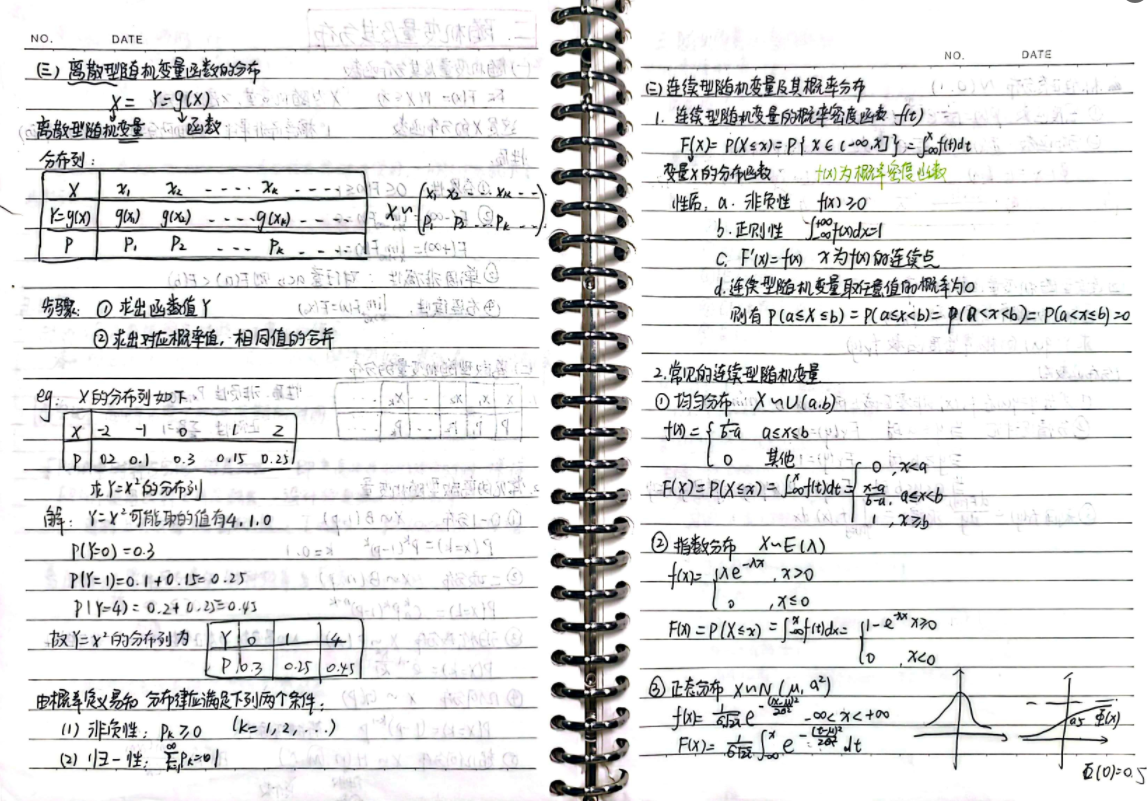 NO. DATE
(三) 离散型随机变量函数的分布
X= Y=g(X)
离散型随机变量 函数
分布列:
X x₁ x₂ ---- xₖ ----
Y=g(x) g(x₁) g(x₂) ---- g(xₖ) ---
P P₁ P₂ --- Pₖ ---
X~(x₁ x₂ ... xₖ ... P₁ P₂ ... Pₖ ...)
步骤: ① 求出函数值Y
② 求出对应概率值,相同值的合并
eg. X的分布列如下
X -2 -1 0 1 2
P 0.2 0.1 0.3 0.15 0.25
求Y=X²的分布列
解: Y=X²可能取的值有4,1,0
P(Y=0)=0.3
P(Y=1)=0.1+0.15=0.25
P(Y=4)=0.2+0.25=0.45
故Y=X²的分布列为
Y 0 1 4
P 0.3 0.25 0.45
由概率定义易知 分布律应满足下列两个条件:
(1) 非负性: Pₖ≥0 (k=1,2,...)
(2) 归一性:
NO. DATE
(三) 连续型随机变量及其概率分布
1. 连续型随机变量的概率密度函数 f(t)
F(x)=P(X≤x)=P{X∈(-∞,x]}=∫₋∞ˣf(t)dt
变量X的分布函数 f(x)为概率密度函数
性质: a. 非负性 f(x)≥0
b. 正则性 ∫₋∞⁺∞f(x)dx=1
C. F'(x)=f(x) x为f(x)的连续点
d. 连续型随机变量取任意值的概率为0
则有 P(a≤X≤b)=P(a≤x<b)=P(a<x<b)=P(a<x≤b)=0
2. 常见的连续型随机变量
① 均匀分布 X~U(a.b)
f(x)={1/(b-a) a≤x≤b
0 其他
F(X)=P(X≤x)=∫₋∞ˣf(t)dt={0, x<a
(x-a)/(b-a), a≤x<b
1, x≥b
② 指数分布 X~E(λ)
f(x)={λe^(-λx), x>0
0, x≤0
F(x)=P(X≤x)=∫₋∞ˣf(t)dt={1-e^(-λx) x≥0
0, x<0
③ 正态分布 X~N(μ,σ²)
f(x)=1/(σ√2π) e^(-(x-μ)²/2σ²) -∞<x<+∞
F(X)=1/(σ√2π)∫₋∞ˣ e^(-(t-μ)²/2σ²) dt
0.5 Φ(x)
Φ(0)=0.5